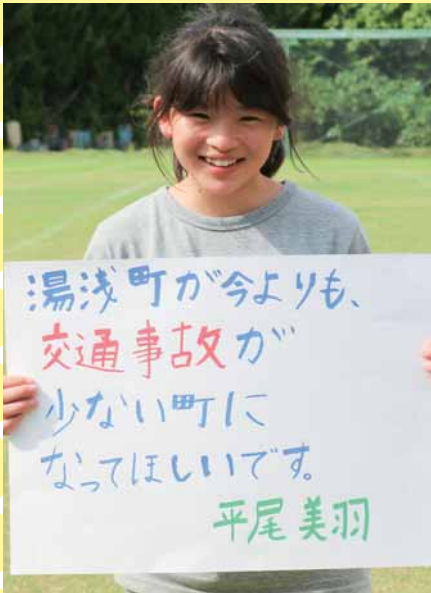 湯浅町が今よりも、
交通事故が
少ない町に
なってほしいです。
平尾美羽